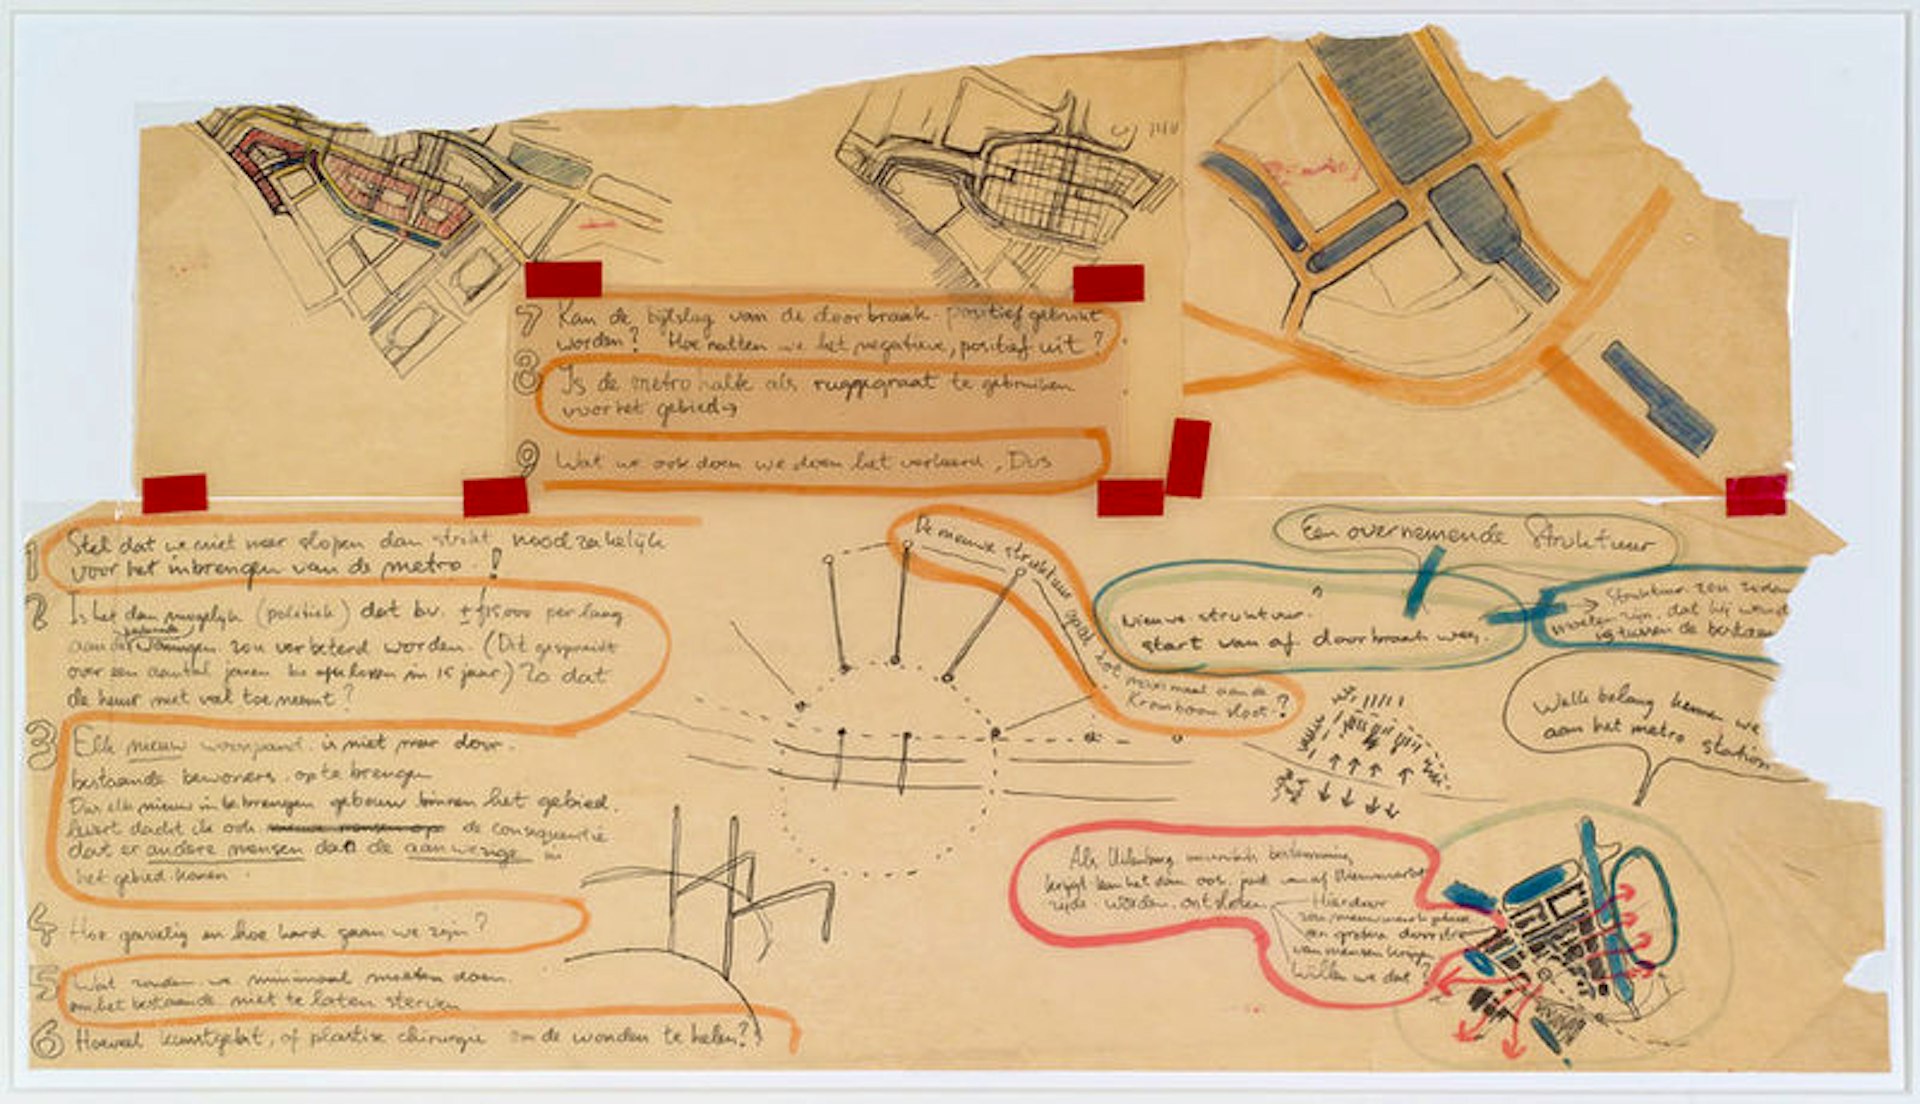 7 Kan de bijtslag van de doorbraak positief gebruikt
worden? Hoe we het negatieve, positief uit?
8 Is de metro halte als ruggegraat te gebruiken
voor het gebied →
9 Wat we ook doen we doen het verkeerd, Dus
1 Stel dat we niet meer slopen dan strikt noodzakelijk
voor het inbrengen van de metro. !
2 Is het dan mogelijk (politiek) dat bv. ± per
woningen zou verbeterd worden. (Dit gespreid
over een aantal jaren in 15 jaar) Zo dat
de huur niet toe neemt?
3 Elk nieuw woonpand is niet meer door
bestaande bewoners op te brengen
Dus elk nieuw in te brengen gebouw binnen het gebied.
levert dacht ik ook de consequentie
dat er andere mensen dan de aanwezige in
het gebied komen.
4 Hoe gevoelig en hoe hard gaan we zijn?
5 Wat zouden we minimaal moeten doen
om het bestaande niet te laten sterven
6 Hoeveel kunstgebit, of plastise chirurgie om de wonden te helen?
De nieuwe struktuur gaat tot maximaal aan de
Kromboom sloot?
Een overnemende Struktuur
Nieuwe struktuur.
start van af doorbraak weg.
Struktuur zou zodanig
moeten zijn, dat hij
tussen de
Welk belang kennen we
aan het metro station
Als Uilenburg bestemming
krijgt kan het dan ook juist vanaf Nieuwmarkt
zijde worden ontsloten.
Hierdoor
zou nieuwmarkt gebied
een grotere
van mensen krijgen
Willen we dat?